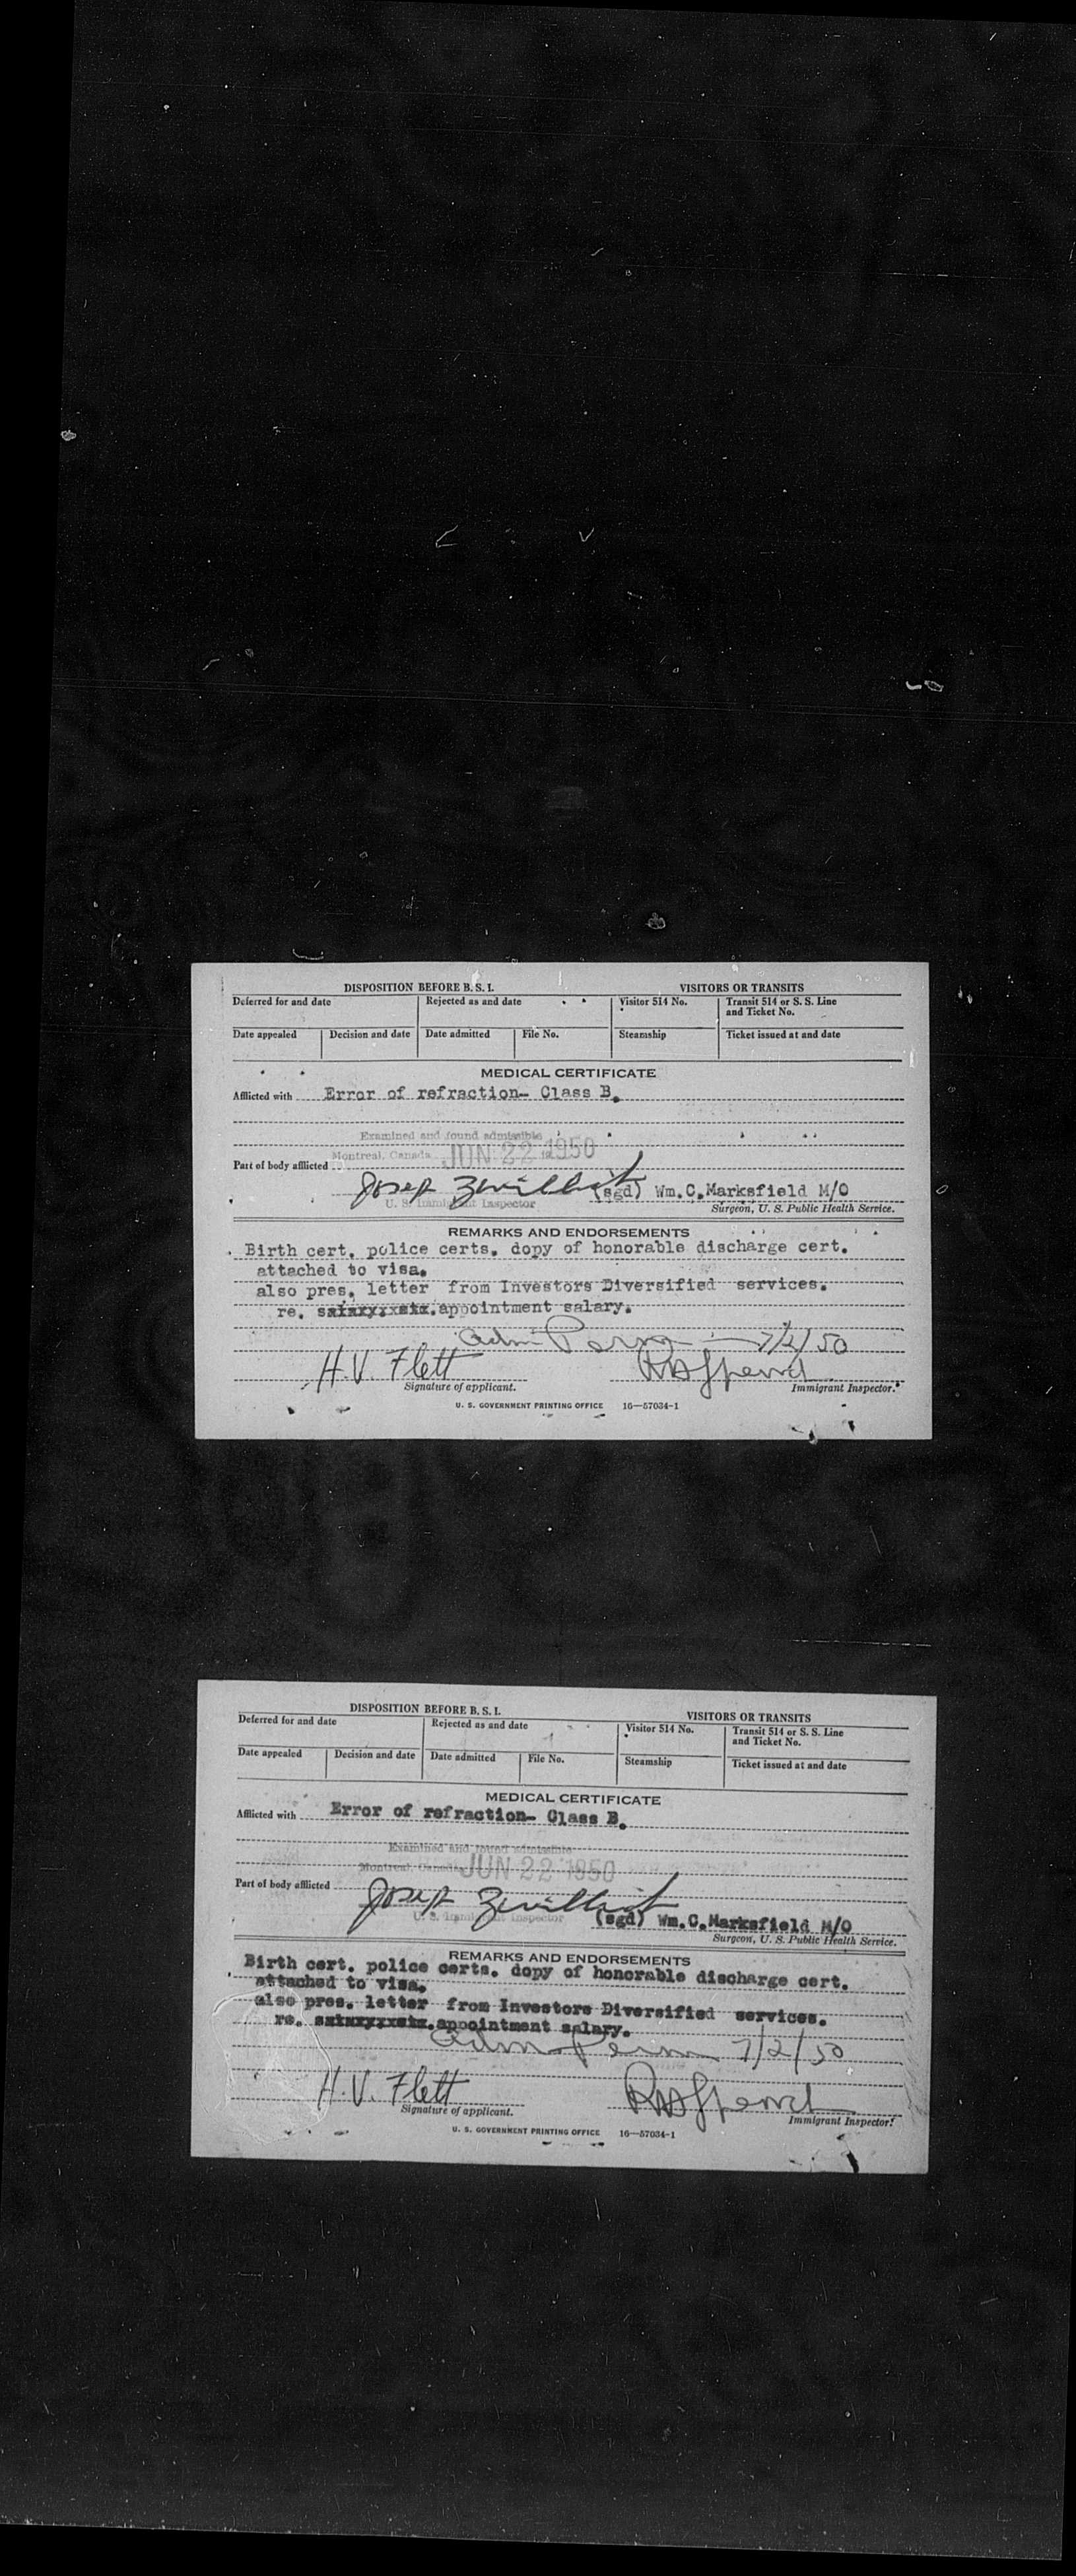 DISPOSITION BEFORE B. S. I. VISITORS OR TRANSITS
Deferred for and date Rejected as and date Visitor 514 No. Transit 514 or S. S. Line
and Ticket No.
Date appealed Decision and date Date admitted File No. Steamship Ticket issued at and date
MEDICAL CERTIFICATE
Afflicted with Error of refraction- Class B.
Examined and found admissible
Montreal, Canada JUN 22 1950
Part of body afflicted
Josep
U. S. Immigrant Inspector (sgd) Wm.C.Marksfield M/O
Surgeon, U. S. Public Health Service.
REMARKS AND ENDORSEMENTS
Birth cert. police certs. dopy of honorable discharge cert.
attached to visa.
also pres. letter from Investors Diversified services.
re. appointment salary.
Adm Perm 7/2/50
H.V. Flett
Signature of applicant. Immigrant Inspector.
U. S. GOVERNMENT PRINTING OFFICE 16—57034-1
DISPOSITION BEFORE B. S. I. VISITORS OR TRANSITS
Deferred for and date Rejected as and date Visitor 514 No. Transit 514 or S. S. Line
and Ticket No.
Date appealed Decision and date Date admitted File No. Steamship Ticket issued at and date
MEDICAL CERTIFICATE
Afflicted with Error of refraction- Class B.
Examined and found admissible
Montreal, Canada JUN 22 1950
Part of body afflicted
Josep
U. S. Immigrant Inspector (sgd) Wm.C.Marksfield M/O
Surgeon, U. S. Public Health Service.
REMARKS AND ENDORSEMENTS
Birth cert. police certs. dopy of honorable discharge cert.
attached to visa.
also pres. letter from Investors Diversified services.
re. appointment salary.
Adm Perm 7/2/50
H.V. Flett
Signature of applicant. Immigrant Inspector.
U. S. GOVERNMENT PRINTING OFFICE 16—57034-1